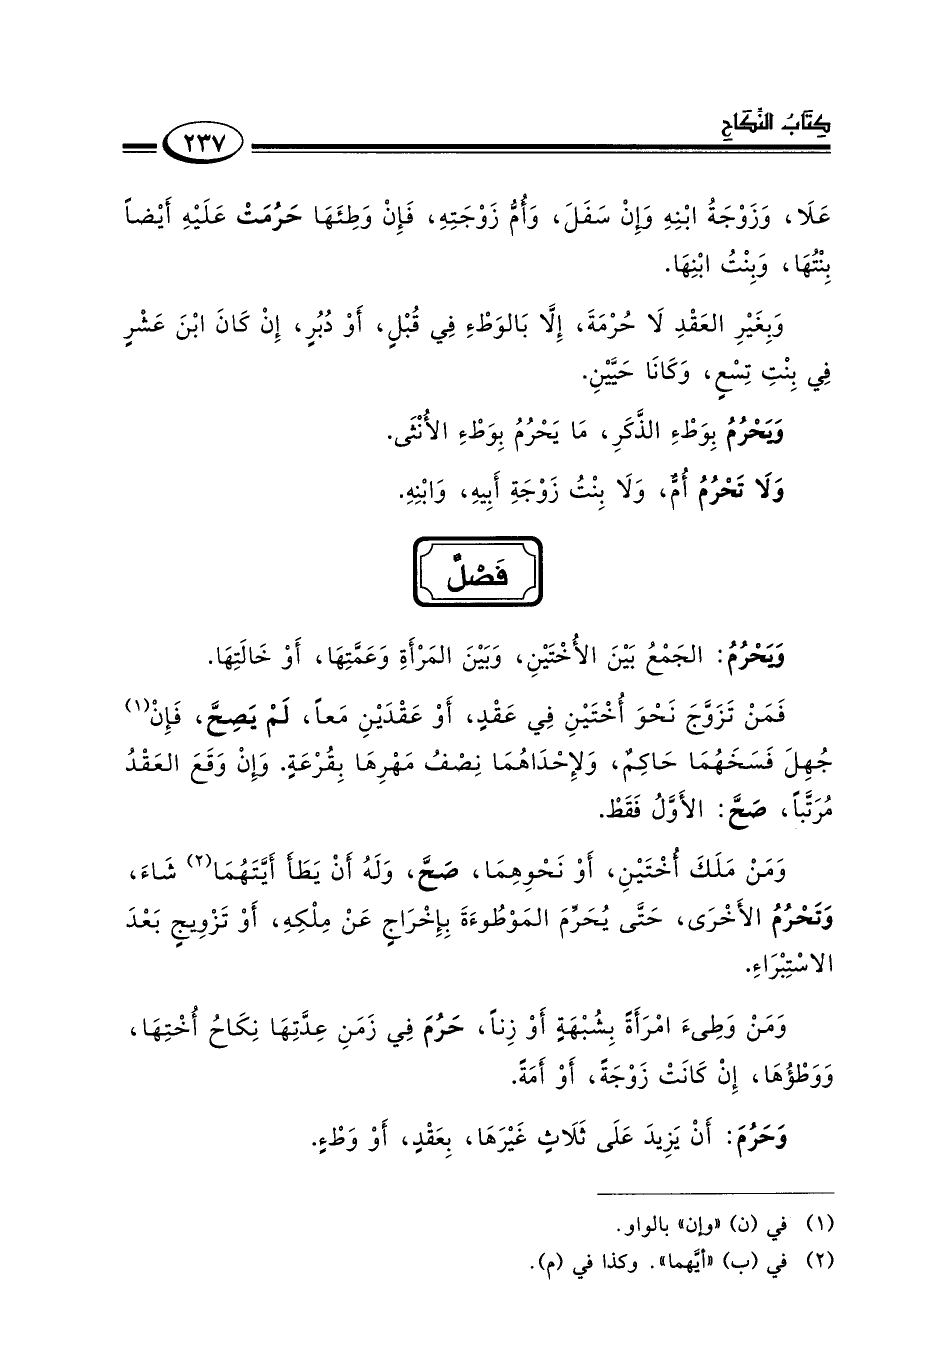 كِتَابُ النِّكَاحِ
٢٣٧
عَلَا، وَزَوْجَةُ ابْنِهِ وَإِنْ سَفَلَ، وَأُمُّ زَوْجَتِهِ، فَإِنْ وَطِئَهَا حَرُمَتْ عَلَيْهِ أَيْضاً
بِنْتُهَا، وَبِنْتُ ابْنِهَا.
وَبِغَيْرِ العَقْدِ لَا حُرْمَةَ، إِلَّا بَالوَطْءِ فِي قُبْلٍ، أَوْ دُبُرٍ، إِنْ كَانَ ابْنَ عَشْرٍ
فِي بِنْتِ تِسْعٍ، وَكَانَا حَيَّيْنِ.
وَيَحْرُمُ بِوَطْءِ الذَّكَرِ، مَا يَحْرُمُ بِوَطْءِ الأُنْثَى.
وَلَا تَحْرُمُ أُمٌّ، وَلَا بِنْتُ زَوْجَةِ أَبِيهِ، وَابْنِهِ.
فَصْلٌ
وَيَحْرُمُ: الجَمْعُ بَيْنَ الأُخْتَيْنِ، وَبَيْنَ المَرْأَةِ وَعَمَّتِهَا، أَوْ خَالَتِهَا.
فَمَنْ تَزَوَّجَ نَحْوَ أُخْتَيْنِ فِي عَقْدٍ، أَوْ عَقْدَيْنِ مَعاً، لَمْ يَصِحَّ، فَإِنْ(١)
جُهِلَ فَسَخَهُمَا حَاكِمٌ، وَلإِحْدَاهُمَا نِصْفُ مَهْرِهَا بِقُرْعَةٍ. وَإِنْ وَقَعَ العَقْدُ
مُرَتَّباً، صَحَّ: الأَوَّلُ فَقَطْ.
وَمَنْ مَلَكَ أُخْتَيْنِ، أَوْ نَحْوِهِمَا، صَحَّ، وَلَهُ أَنْ يَطَأَ أَيَّتَهُمَا(٢) شَاءَ،
وَتَحْرُمُ الأَخْرَى، حَتَّى يُحَرِّمَ المَوْطُوءَةَ بِإِخْرَاجٍ عَنْ مِلْكِهِ، أَوْ تَزْوِيجٍ بَعْدَ
الاسْتِبْرَاءِ.
وَمَنْ وَطِىءَ امْرَأَةً بِشُبْهَةٍ أَوْ زِناً، حَرُمَ فِي زَمَنِ عِدَّتِهَا نِكَاحُ أُخْتِهَا،
وَوَطْؤُهَا، إِنْ كَانَتْ زَوْجَةً، أَوْ أَمَةً.
وَحَرُمَ: أَنْ يَزِيدَ عَلَى ثَلَاثٍ غَيْرَهَا، بِعَقْدٍ، أَوْ وَطْءٍ.
(١) في (ن) «وإن» بالواو.
(٢) في (ب) «أيَّهما». وكذا في (م).